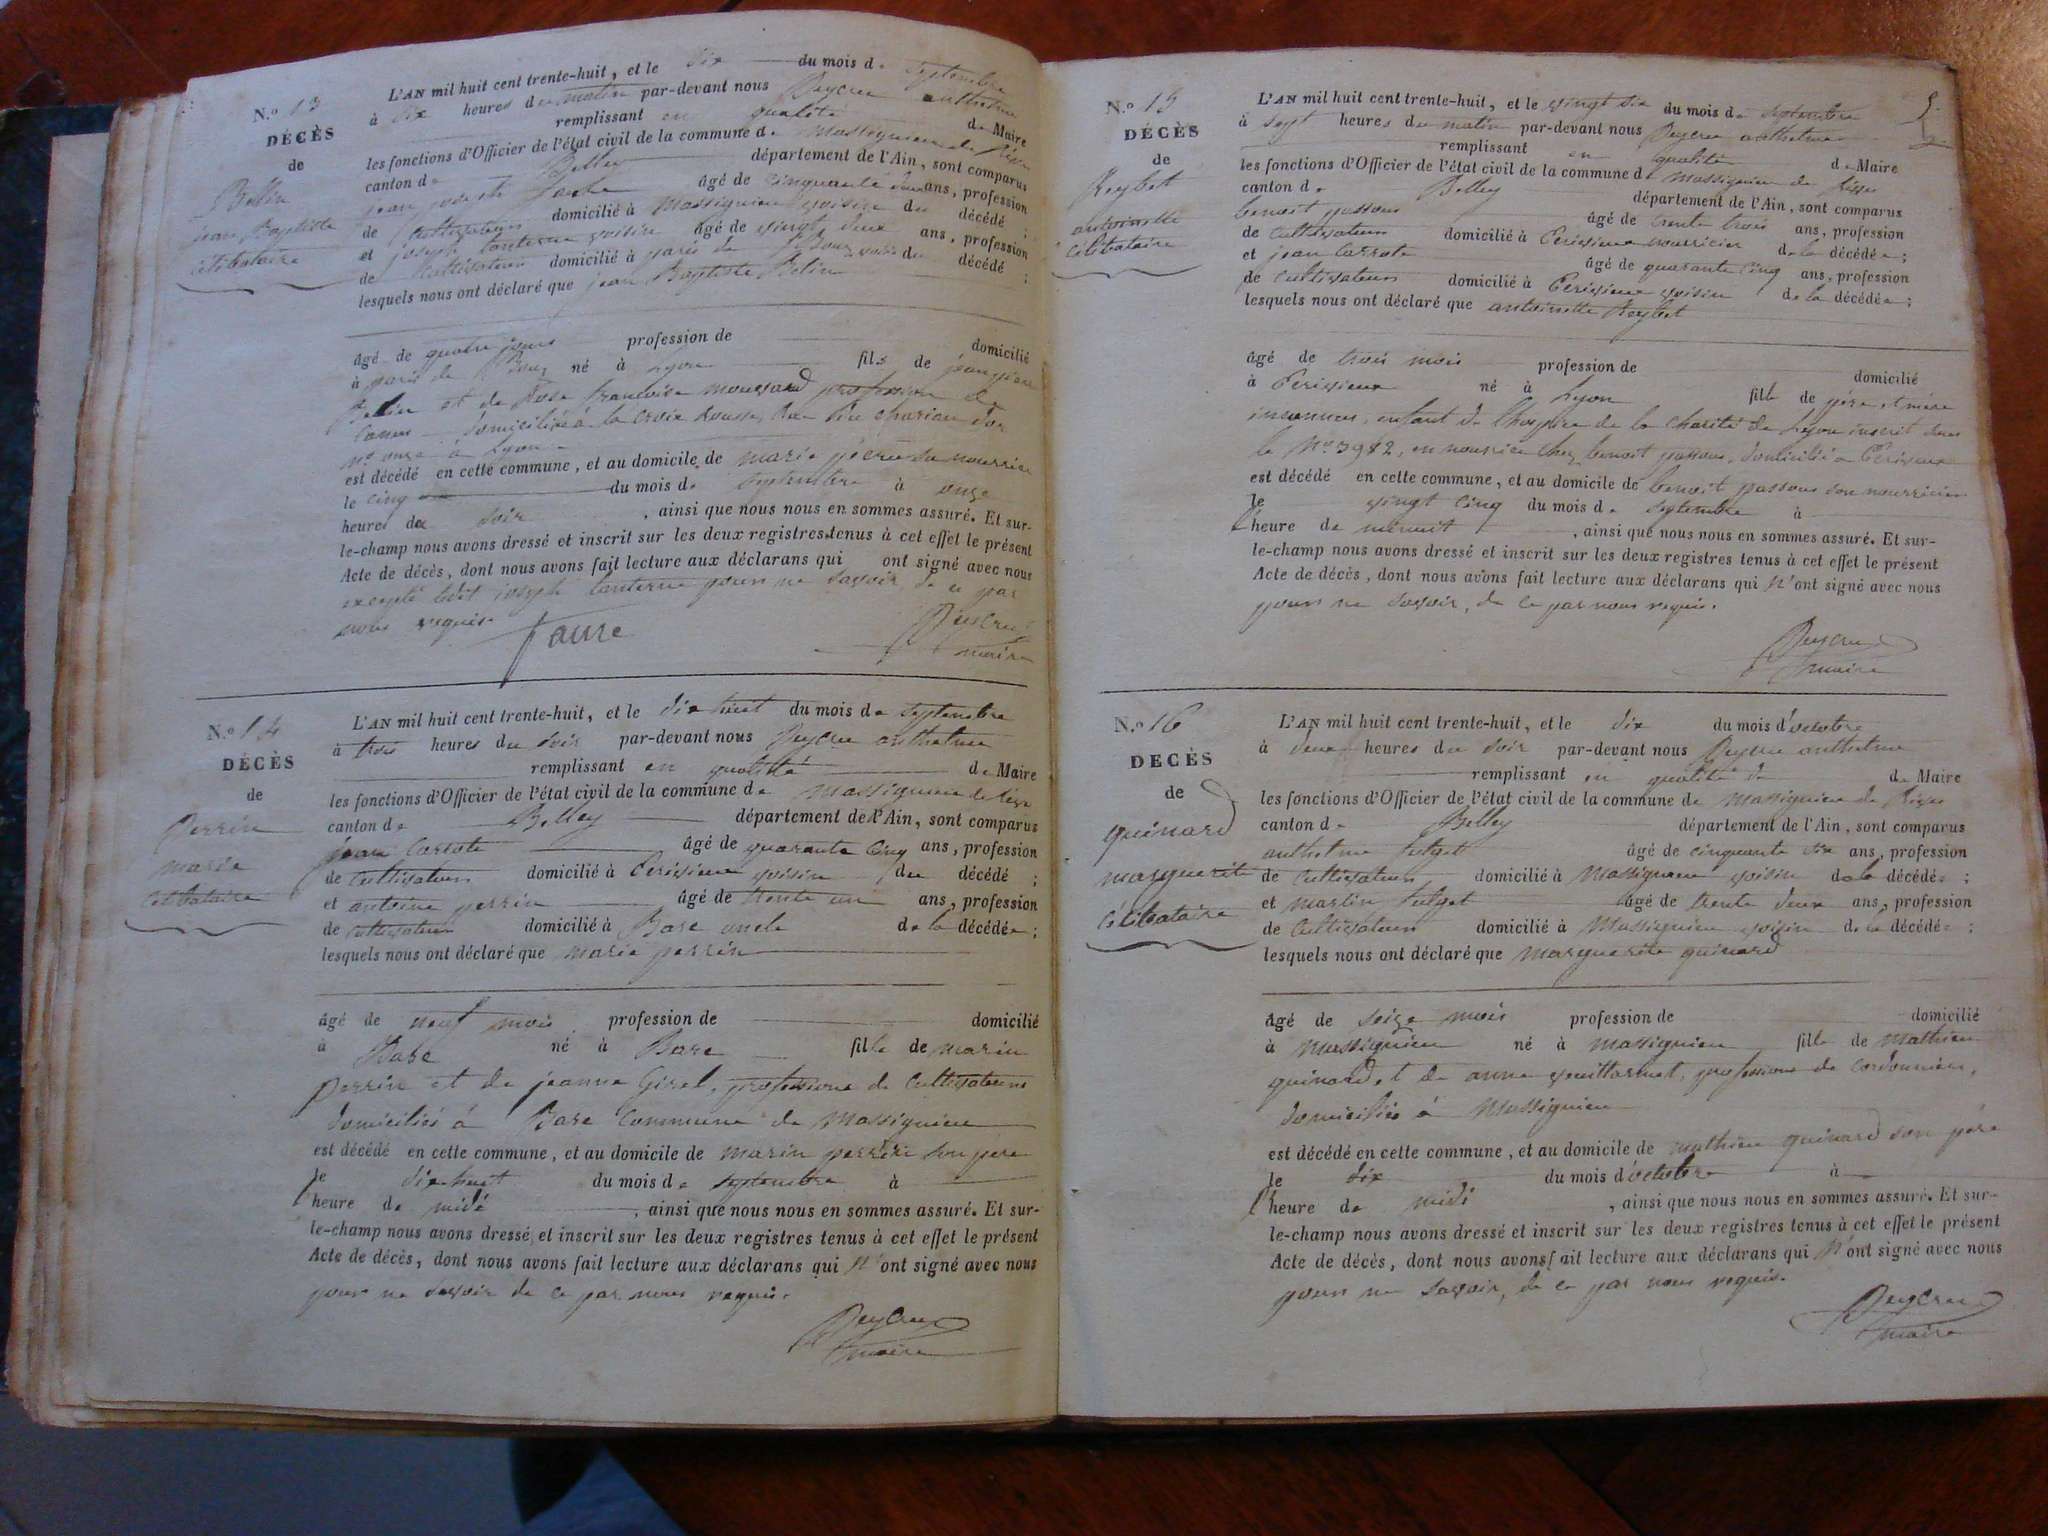 N.º 13
DÉCÈS
de
Belin
jean Baptiste
célibataire
L'AN mil huit cent trente-huit, et le six du mois de septembre
à dix heures du matin par-devant nous Peycru anthelme
remplissant en qualité de Maire
les fonctions d'Officier de l'état civil de la commune de Massignieu de Rives
canton de Belley département de l'Ain, sont comparus
jean joseph faure âgé de cinquante deux ans, profession
de Cultivateur domicilié à Massignieu voisin du décédé ;
et joseph tanterne voisin âgé de vingt deux ans, profession
de Cultivateur domicilié à voisin du décédé ;
lesquels nous ont déclaré que jean Baptiste Belin
âgé de quatre jours profession de domicilié
à né à Lyon fils de jean pierre
Belin et de Rose francoise moussard profession de
domiciliés à la Croix Rousse, Rue du chariau d'or
n.º onze à Lyon
est décédé en cette commune, et au domicile de marie sa nourrice
le cinq du mois de septembre à onze
heures du soir , ainsi que nous nous en sommes assuré. Et sur-
le-champ nous avons dressé et inscrit sur les deux registres tenus à cet effet le présent
Acte de décès, dont nous avons fait lecture aux déclarans qui ont signé avec nous
excepté ledit joseph tanterne pour ne savoir de ce par
nous requis
faure
Peycru
maire
N.º 14
DÉCÈS
de
Perrin
marie
célibataire
L'AN mil huit cent trente-huit, et le dix huit du mois de septembre
à trois heures du soir par-devant nous Peycru anthelme
remplissant en qualité de Maire
les fonctions d'Officier de l'état civil de la commune de Massignieu de Rives
canton de Belley département de l'Ain, sont comparus
jean Carrote âgé de quarante cinq ans, profession
de Cultivateur domicilié à Cerisieux voisin du décédé ;
et antoine perrin âgé de trente un ans, profession
de Cultivateur domicilié à Bare oncle de la décédée ;
lesquels nous ont déclaré que marie perrin
âgé de neuf mois profession de domicilié
à Bare né à Bare fille de marin
Perrin et de jeanne Girel, professions de Cultivateurs
domiciliés à Bare Commune de Massignieu
est décédé en cette commune, et au domicile de marin perrin son père
le dix-huit du mois de septembre à
l'heure de midi , ainsi que nous nous en sommes assuré. Et sur-
le-champ nous avons dressé et inscrit sur les deux registres tenus à cet effet le présent
Acte de décès, dont nous avons fait lecture aux déclarans qui n'ont signé avec nous
pour ne savoir de ce par nous requis.
Peycru
maire
N.º 15
DÉCÈS
de
Reybet
antoinette
célibataire
L'AN mil huit cent trente-huit, et le vingt six du mois de septembre
à sept heures du matin par-devant nous Peycru anthelme
remplissant en qualité de Maire
les fonctions d'Officier de l'état civil de la commune de Massignieu de Rives
canton de Belley département de l'Ain, sont comparus
benoit passous âgé de trente trois ans, profession
de Cultivateur domicilié à Cerisieux nourricier de la décédée ;
et jean Carrote âgé de quarante cinq ans, profession
de Cultivateur domicilié à Cerisieux voisin de la décédée ;
lesquels nous ont déclaré que antoinette Reybet
âgé de trois mois profession de domicilié
à Cerisieux né à Lyon fille de père et mère
inconnus, enfant de l'hospice de la Charité de Lyon inscrit sous
le N.º 3982, en nourrice chez benoit passous, domicilié à Cerisieux
est décédé en cette commune, et au domicile de benoit passous son nourricier
le vingt cinq du mois de septembre à
l'heure de minuit , ainsi que nous nous en sommes assuré. Et sur-
le-champ nous avons dressé et inscrit sur les deux registres tenus à cet effet le présent
Acte de décès, dont nous avons fait lecture aux déclarans qui n'ont signé avec nous
pour ne savoir, de ce par nous requis.
Peycru
maire
N.º 16
DÉCÈS
de
quinard
marguerite
célibataire
L'AN mil huit cent trente-huit, et le dix du mois d'octobre
à deux heures du soir par-devant nous Peycru anthelme
remplissant en qualité de de Maire
les fonctions d'Officier de l'état civil de la commune de Massignieu de Rives
canton de Belley département de l'Ain, sont comparus
anthelme âgé de cinquante six ans, profession
de Cultivateur domicilié à Massignieu voisin de la décédée ;
et martin âgé de trente deux ans, profession
de Cultivateur domicilié à Massignieu voisin de la décédée ;
lesquels nous ont déclaré que marguerite quinard
âgé de seize mois profession de domicilié
à Massignieu né à Massignieu fille de Mathieu
quinard et de anne professions de Cordonniers,
domiciliés à Massignieu
est décédé en cette commune, et au domicile de mathieu quinard son père
le dix du mois d'octobre à
l'heure de midi , ainsi que nous nous en sommes assuré. Et sur-
le-champ nous avons dressé et inscrit sur les deux registres tenus à cet effet le présent
Acte de décès, dont nous avons fait lecture aux déclarans qui n'ont signé avec nous
pour ne savoir, de ce par nous requis.
Peycru
maire